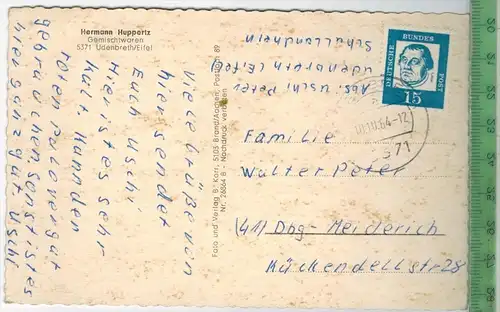 Hermann Huppertz
Gemischtwaren
5371 Udenbreth/Eifel
Viele Grüße von
hier sendet
Euch Uschi
Hier ist es sehr
kalt. Kann den
roten Pulover gut
gebrauchen sonst ist es
hier ganz gut Uschi
Foto und Verlag B. Korr, 5105 Brand/Aachen, Postfach 89
Nr. 76664 B - Nachdruck verboten
Abs. Uschi Peter
Udenbreth (Eifel)
Schullandheim
DEUTSCHE BUNDES POST
15
.64-12
5371
Familie
Walter Peter
(41) Dbg-Meiderich
Kückendellstr 28